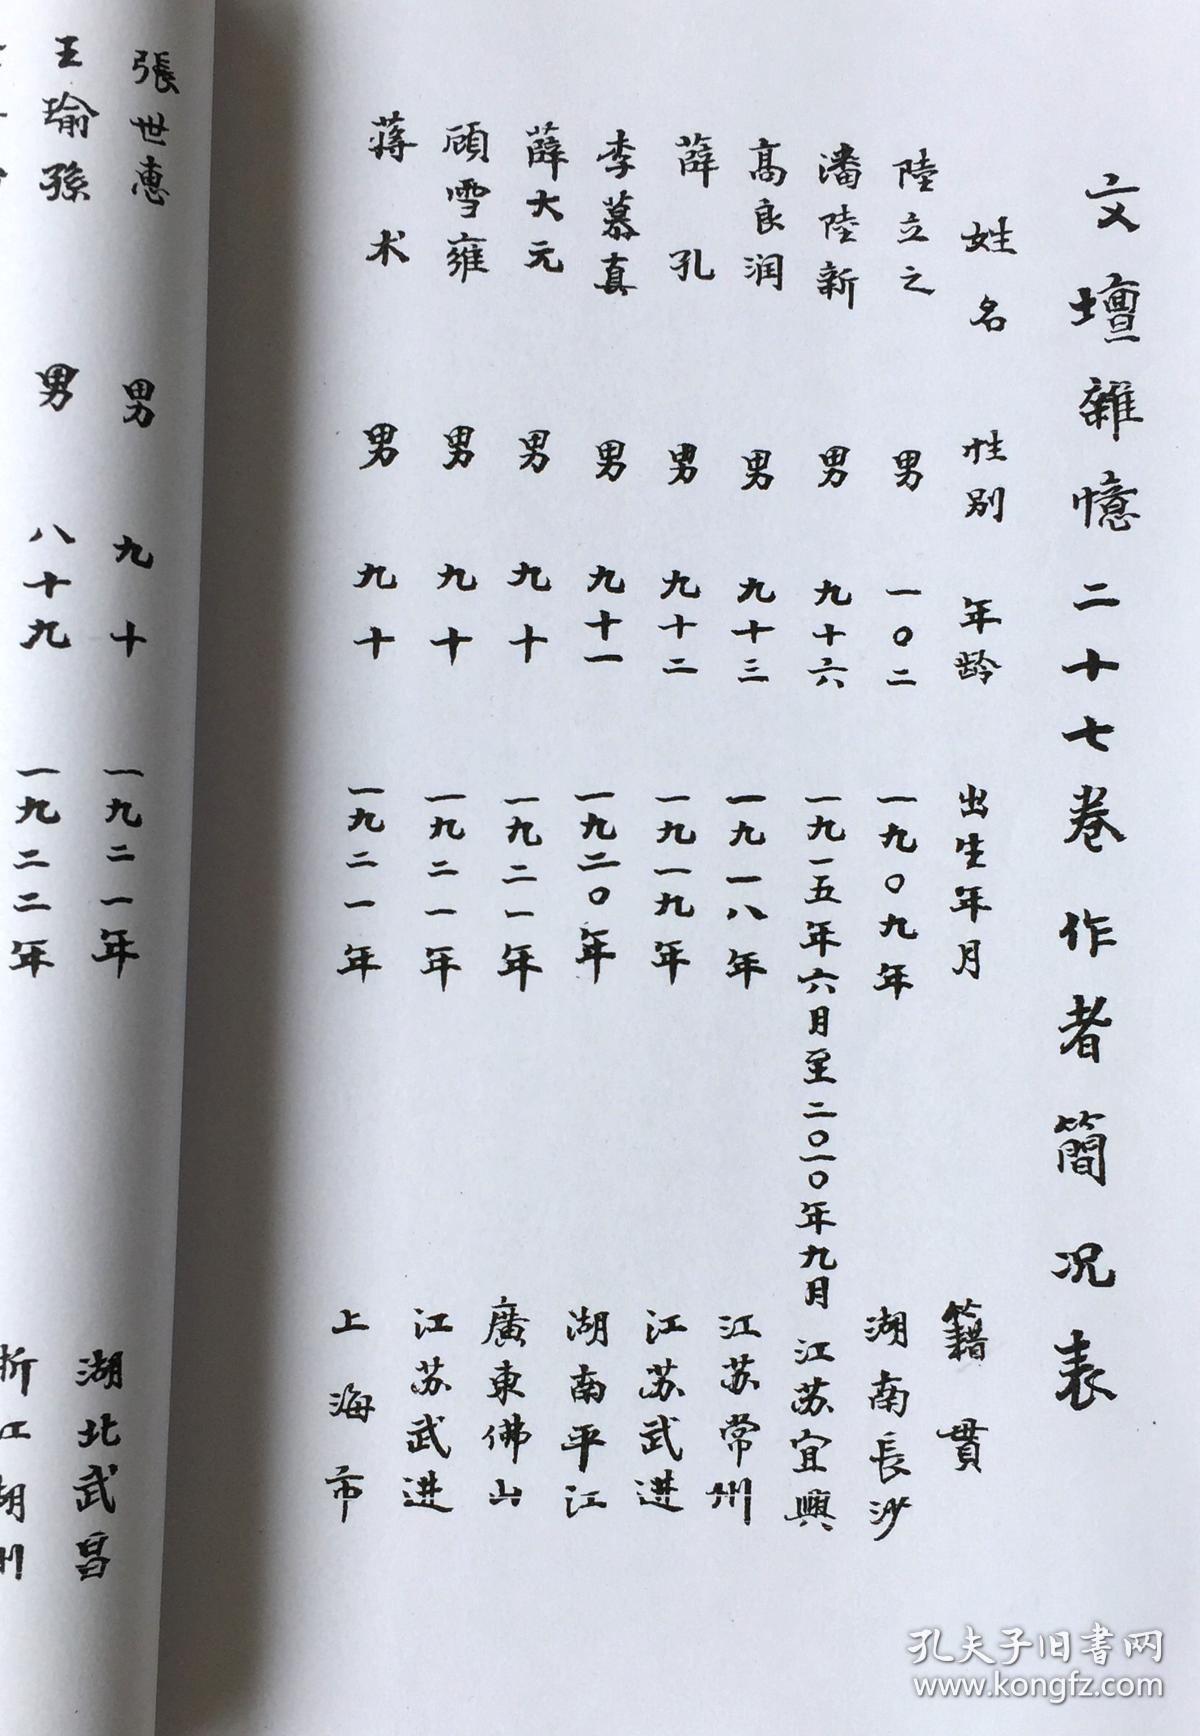 文壇雜憶二十七卷作者簡況表
姓名 性别 年龄 出生年月 籍貫
陸立之 男 一〇二 一九〇九年 湖南長沙
潘陸新 男 九十六 一九一五年六月至二〇一〇年九月 江苏宜興
高良润 男 九十三 一九一八年 江苏常州
薛孔 男 九十二 一九一九年 江苏武进
李慕真 男 九十一 一九二〇年 湖南平江
薛大元 男 九十 一九二一年 廣東佛山
顾雪雍 男 九十 一九二一年 江苏武进
蒋术 男 九十 一九二一年 上海市
張世惠 男 九十 一九二一年 湖北武昌
王瑜孫 男 八十九 一九二二年 浙江湖州
孔夫子旧书网
www.kongfz.com